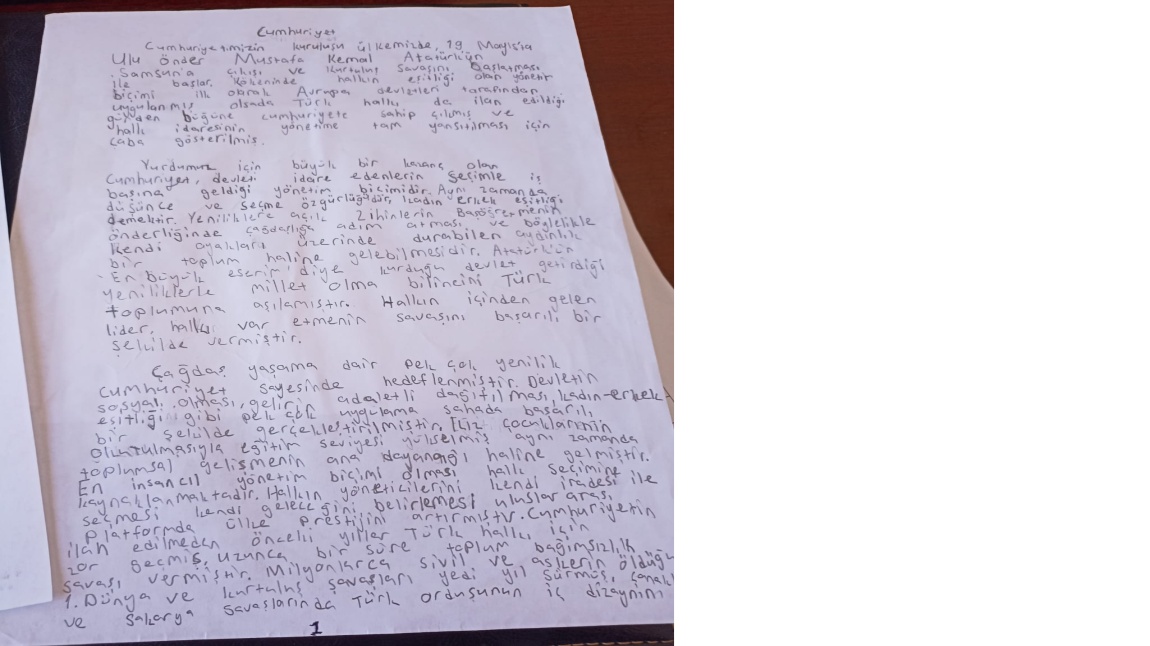 Cumhuriyet
Cumhuriyetimizin kuruluşu ülkemizde, 19 Mayıs'ta
Ulu önder Mustafa Kemal Atatürkün
Samsuna çıkışı ve kurtuluş savaşını başlatması
ile başlar. Kökeninde halkın eşitliği olan yönetir
biçimi ilk olarak Avrupa devletleri tarafından
uygulanmış olsada Türk halkı da ilan edildiği
günden bugüne cumhuriyete sahip çıkmış ve
halk idaresinin yönetime tam yansıtılması için
çaba gösterilmiş.
Yurdumuz için büyük bir kazanç olan
Cumhuriyet, devleti idare edenlerin seçimle iş
başına geldiği yönetim biçimidir. Aynı zamanda
düşünce ve seçme özgürlüğüdür, kadın erkek eşitliği
demektir. Yeniliklere açık zihinlerin Başöğretmenin
önderliğinde çağdaşlığa adım atması ve böylelikle
kendi ayakları üzerinde durabilen aydınlık
bir toplum haline gelebilmesidir. Atatürk'ün
"En büyük eserim" diye kurduğu devlet getirdiği
yeniliklerle millet olma bilincini Türk
toplumuna aşılamıştır. Halkın içinden gelen
lider, halkı var etmenin savaşını başarılı bir
şekilde vermiştir.
Çağdaş yaşama dair pek çok yenilik
cumhuriyet sayesinde hedeflenmiştir. Devletin
sosyal olması, gelirin adaletli dağıtılması, kadın-erkek
eşitliği gibi pek çok uygulama sahada başarılı
bir şekilde gerçekleştirilmiştir. Kız çocuklarının
okutulmasıyla eğitim seviyesi yükselmiş aynı zamanda
toplumsal gelişmenin ana dayanağı haline gelmiştir.
En insancıl yönetim biçimi olması halk seçimine
kaynaklanmaktadır. Halkın yöneticilerini kendi iradesi ile
seçmesi kendi geleceğini belirlemesi uluslar arası
platformda ülke prestijini artırmıştır. Cumhuriyetin
ilan edilmeden önceki yıllar Türk halkı için
zor geçmiş, uzunca bir süre toplum bağımsızlık
savaşı vermiştir. Milyonlarca sivil ve askerin öldüğü
1. Dünya ve kurtuluş savaşları yedi yıl sürmüş, çanakk
ve sakarya savaşlarında Türk ordusunun iç dizaynını
1